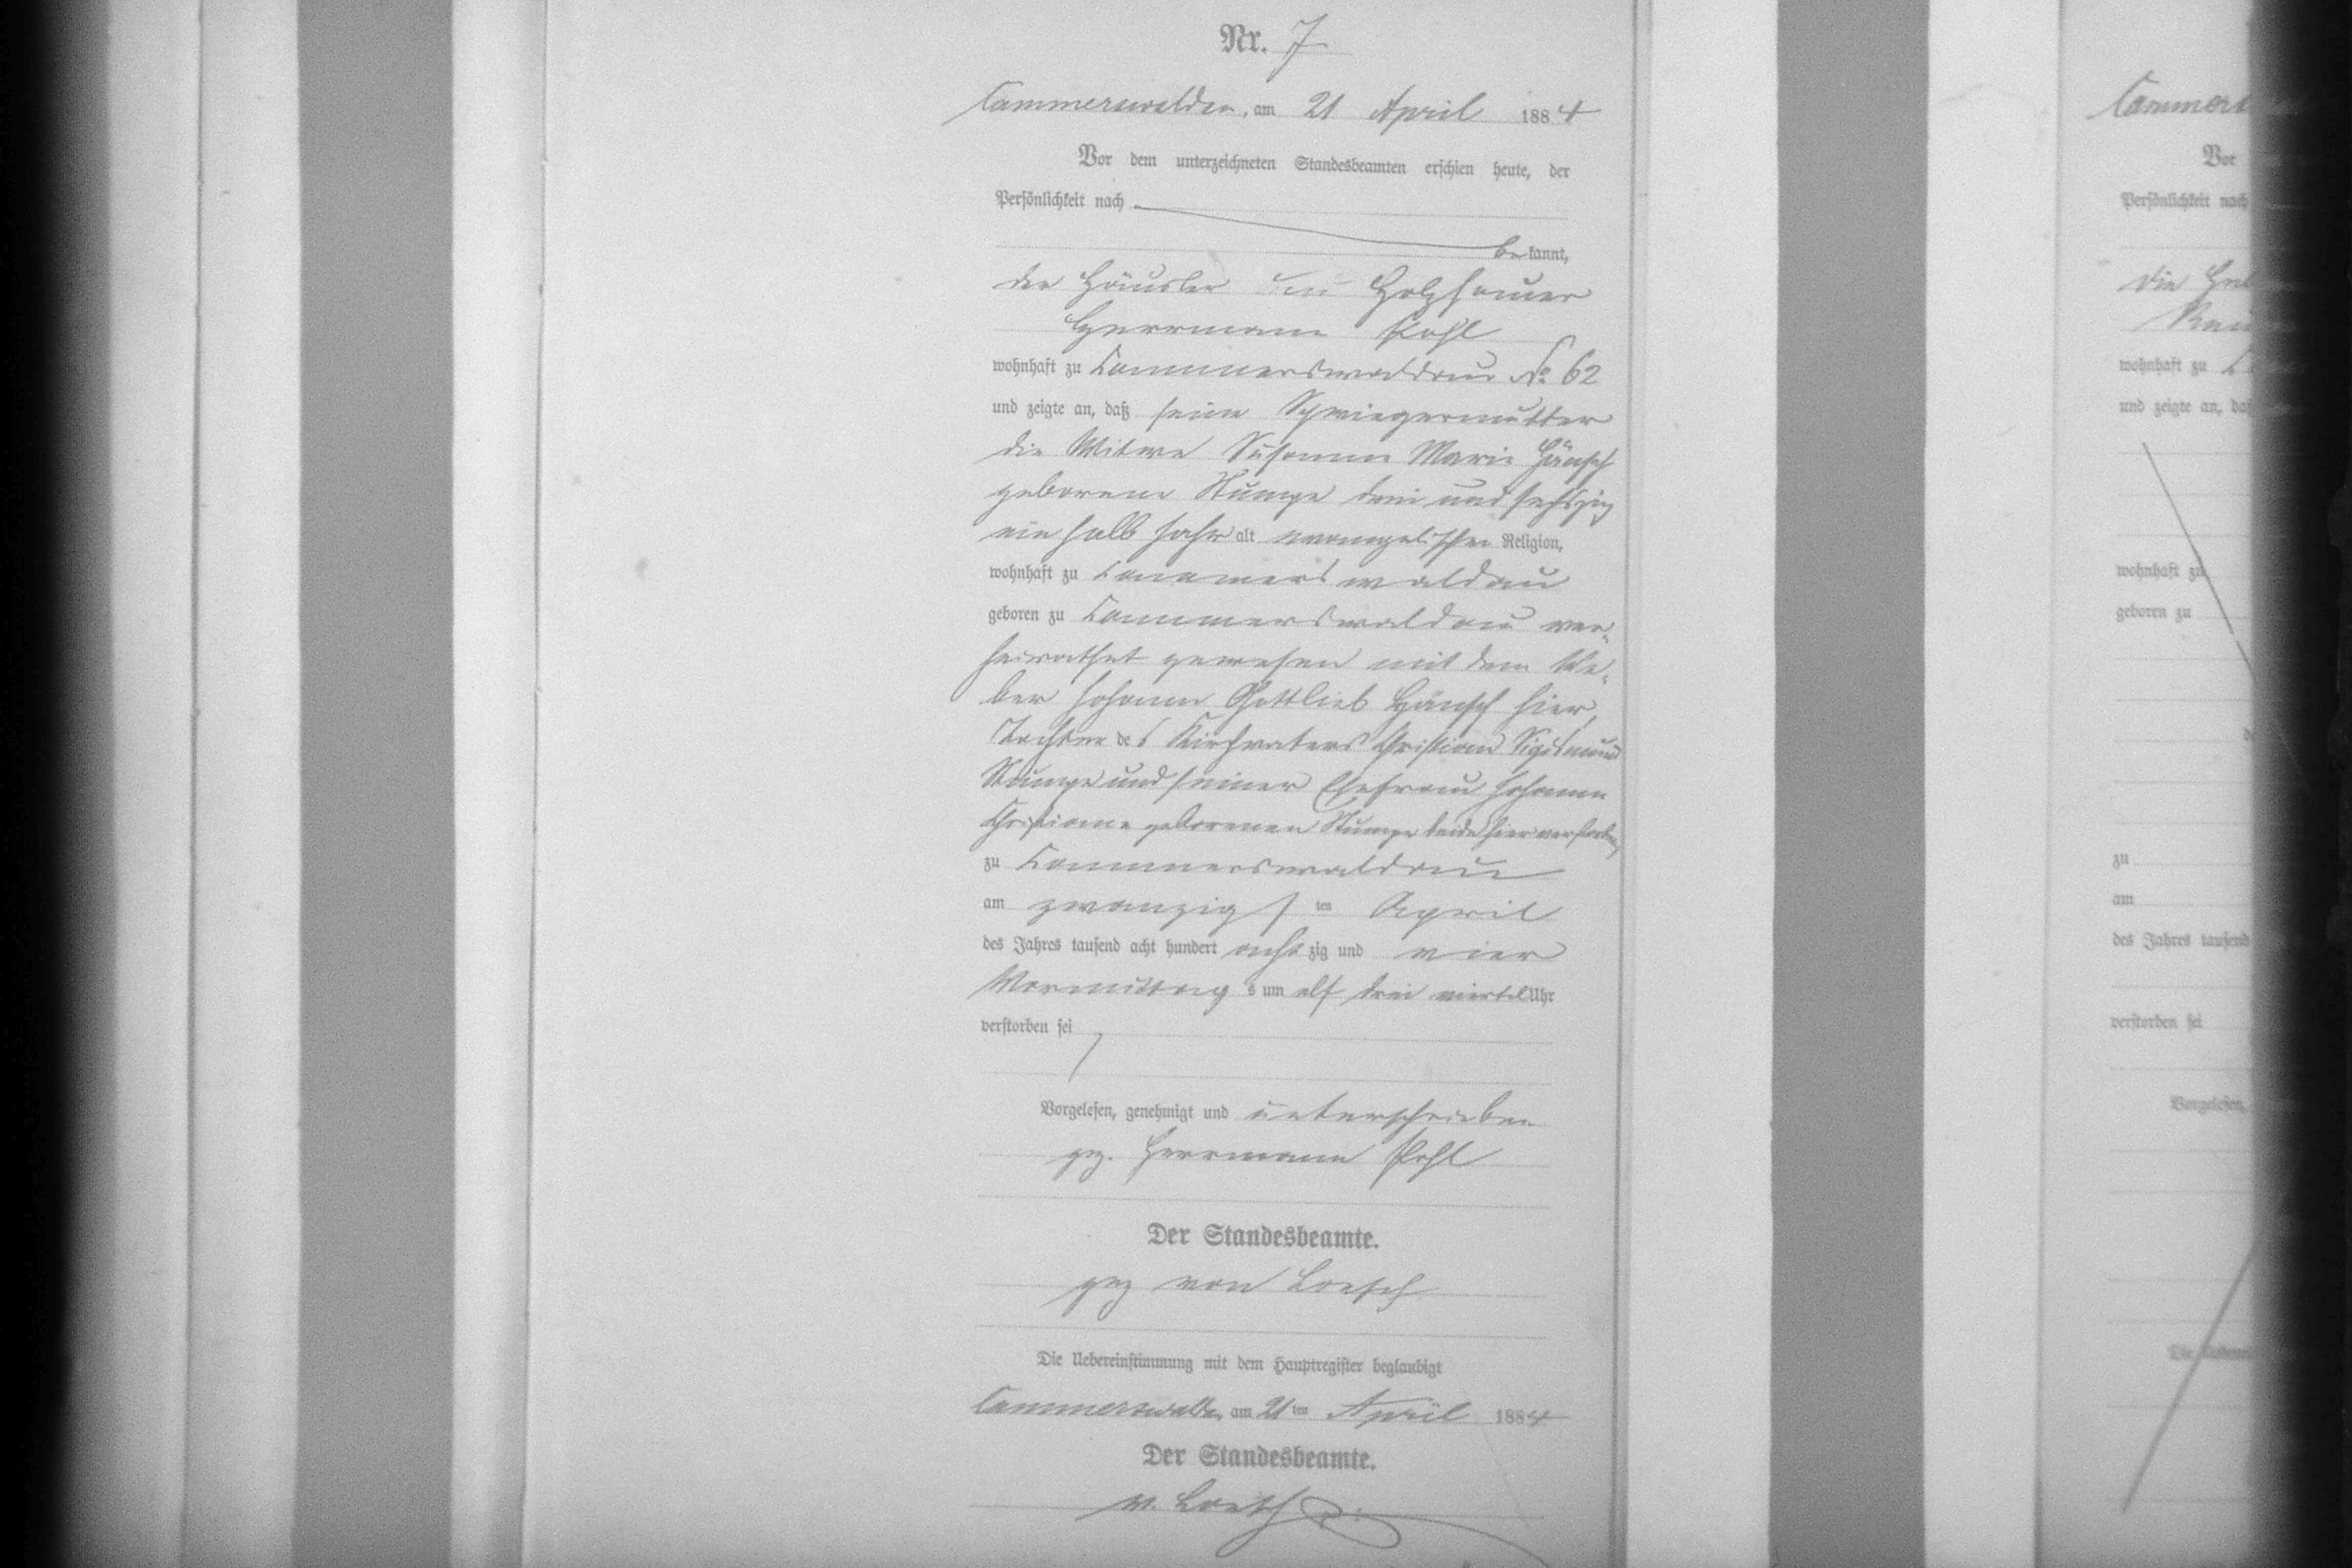 Nr. 7
Cammerswaldau, am 21 April 1884
Vor dem unterzeichneten Standesbeamten erschien heute, der
Persönlichkeit nach
bekannt,
der Häusler Holzhauer
Herrmann Pohl
wohnhaft zu Cammerswaldau No 62
und zeigte an, daß seine Schwiegermutter
die Witwe Susanna Marie Hänsch
geborene Stumpe drei und sechszig
ein halb Jahr alt evangelischer Religion,
wohnhaft zu Cammerswaldau
geboren zu Cammerswaldau ver-
heirathet gewesen mit dem We-
ber Johann Gottlieb Hänsch hier,
Tochter des Kirchvaters Christian Sigismund
Stumpe und seiner Ehefrau Johanne
Christiane geborenen Stumpe beide hier verstorben,
zu Cammerswaldau
am zwanzigsten April
des Jahres tausend acht hundert achtzig und vier
Vormittags um elf drei viertel Uhr
verstorben sei
Vorgelesen, genehmigt und unterschrieben
gez. Herrmann Pohl
Der Standesbeamte.
gez von Loesch
Die Uebereinstimmung mit dem Hauptregister beglaubigt
Cammerswaldau am 21ten April 1884
Der Standesbeamte.
v. Loesch
Vor
Persönlichkeit nach
die
wohnhaft zu
und zeigte an, daß
wohnhaft zu
geboren zu
zu
am
des Jahres tausend
verstorben sei
Vorgelesen,